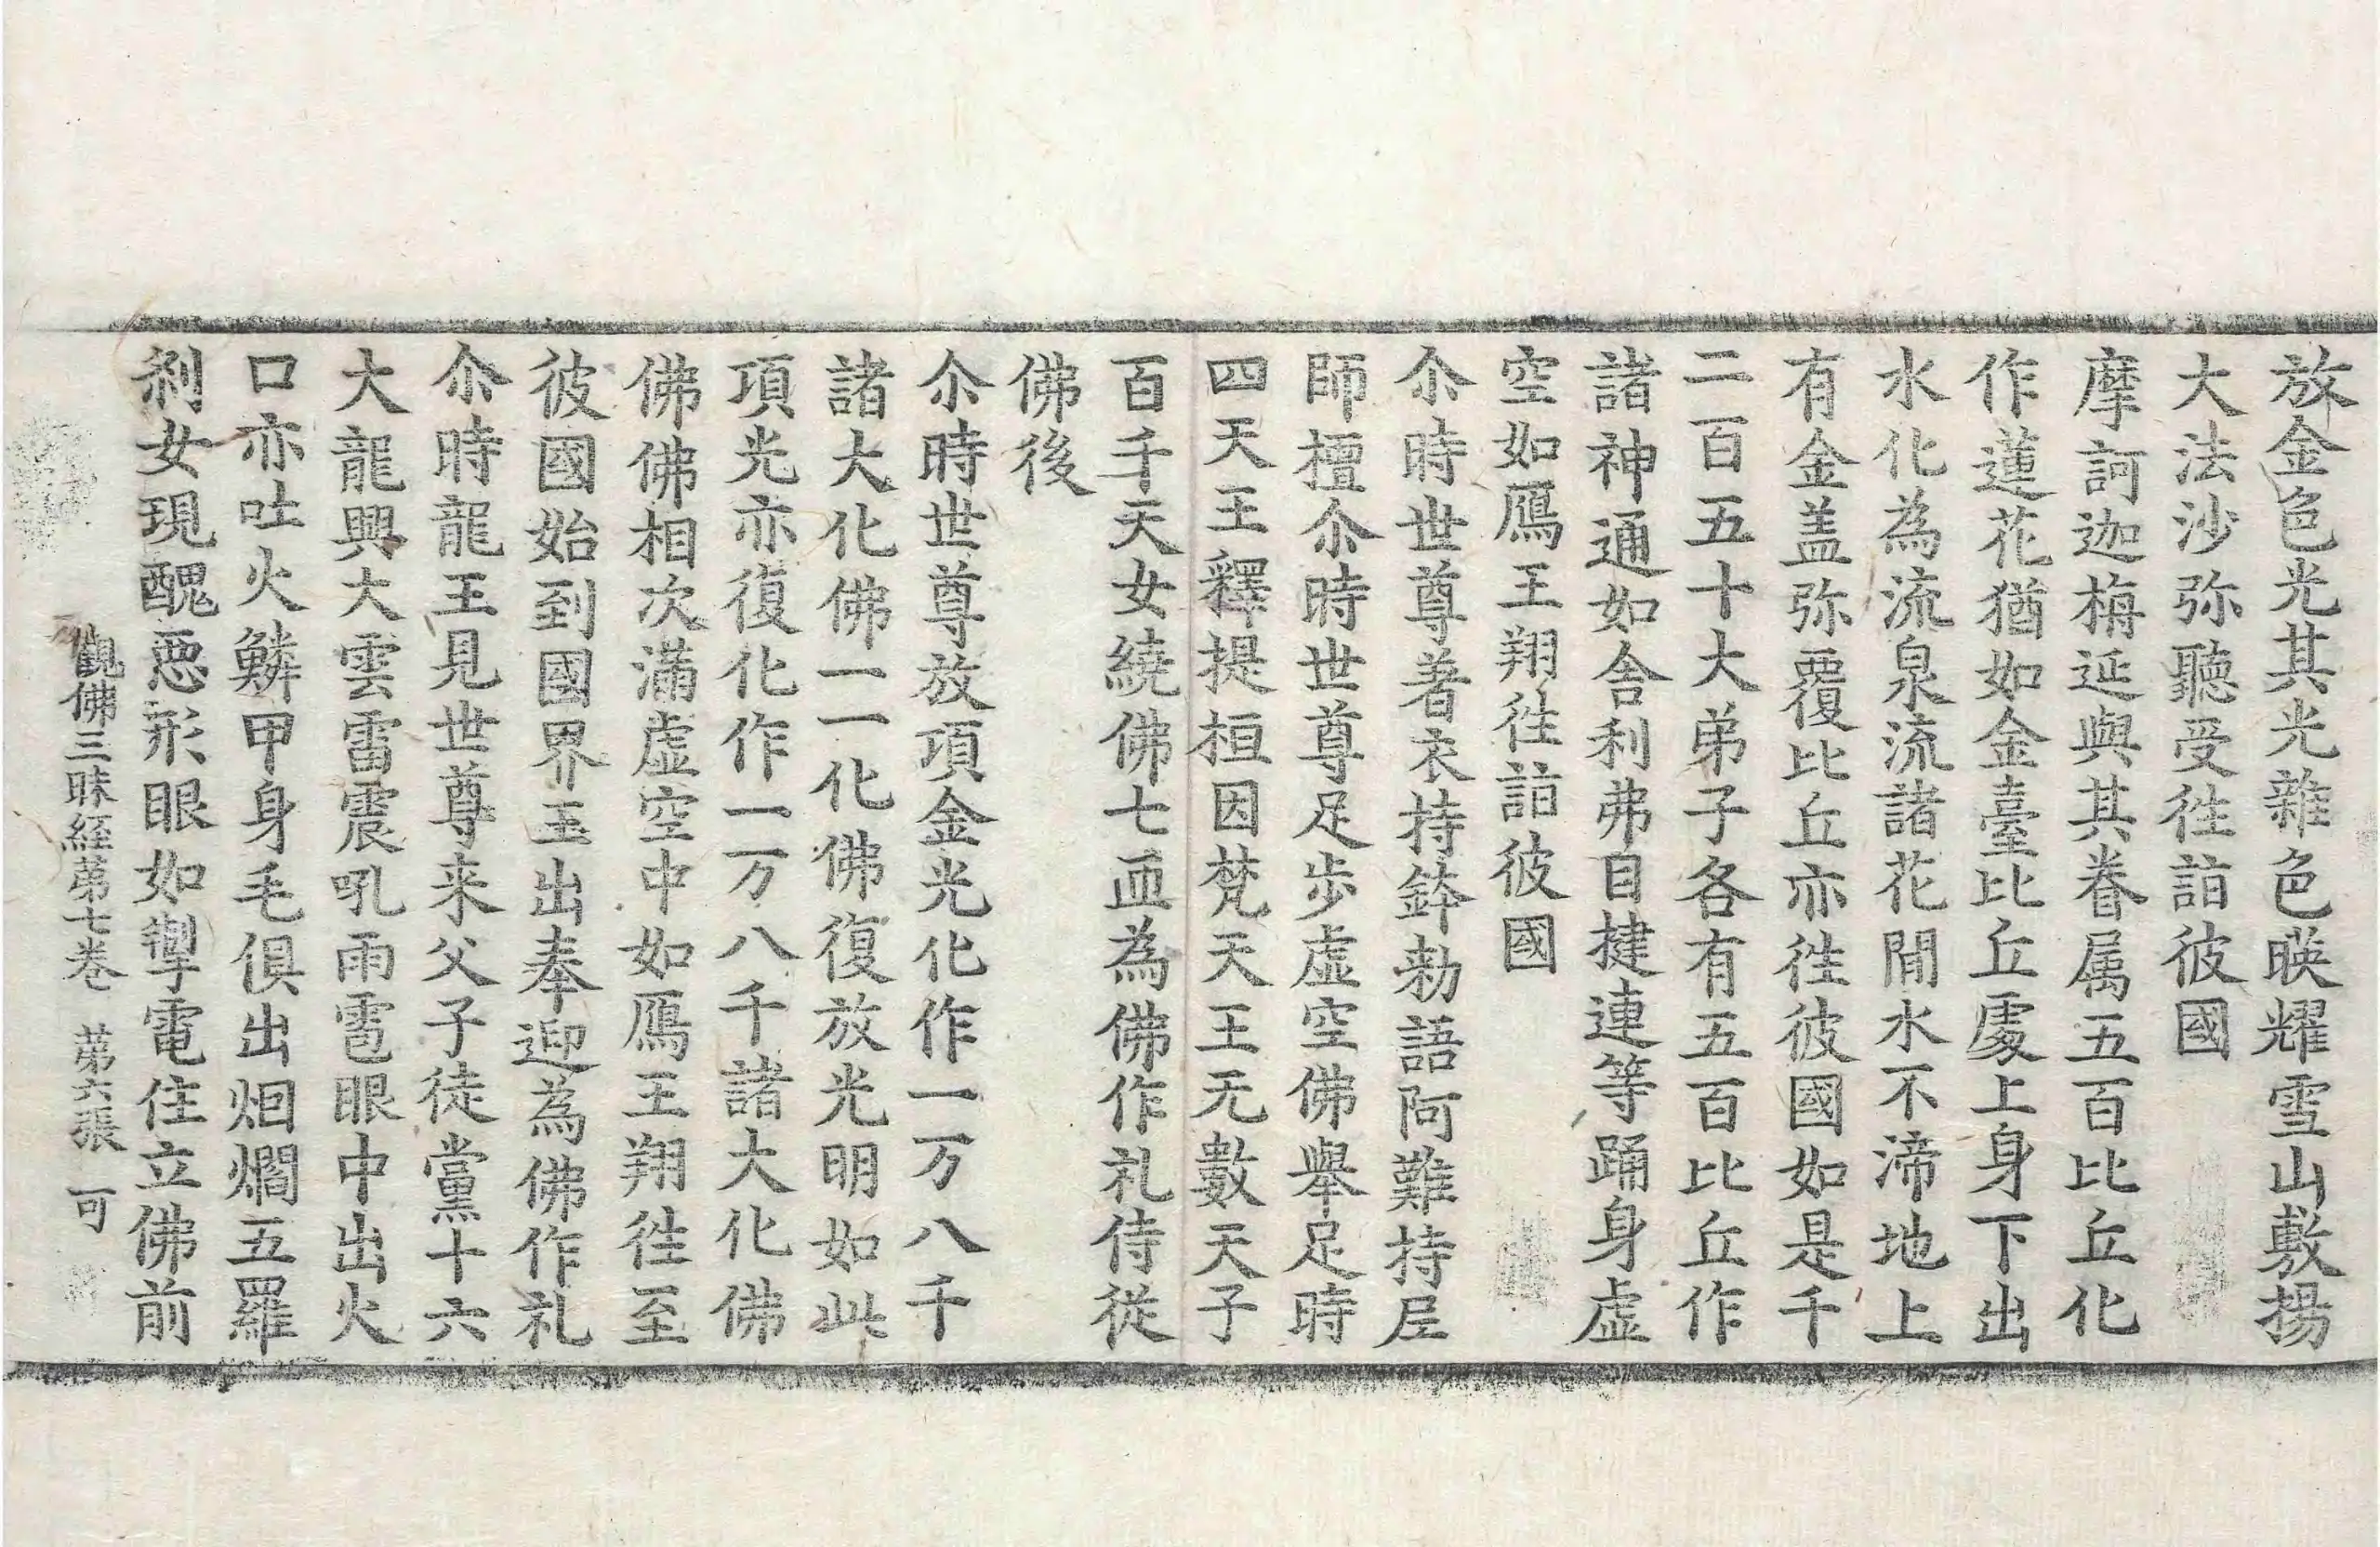 放金色光其光雜色暎耀雪山敷揚
大法沙弥聽受徃詣彼國
摩訶迦栴延與其眷属五百比丘化
作蓮花猶如金臺比丘處上身下出
水化為流泉流諸花間水不渧地上
有金盖弥覆比丘亦徃彼國如是千
二百五十大弟子各有五百比丘作
諸神通如舍利弗目揵連等踊身虛
空如鴈王翔徃詣彼國
尒時世尊著衣持鉢勑語阿難持尼
師檀尒時世尊足步虛空佛舉足時
四天王釋提桓因梵天王无數天子
百千天女繞佛七匝為佛作礼侍從
佛後
尒時世尊放項金光化作一万八千
諸大化佛一一化佛復放光明如此
項光亦復化作一万八千諸大化佛
佛佛相次滿虛空中如鴈王翔徃至
彼國始到國界王出奉迎為佛作礼
尒時龍王見世尊来父子徒黨十六
大龍興大雲雷震吼雨雹眼中出火
口亦吐火鱗甲身毛俱出烟爓五羅
剎女現醜惡形眼如掣電住立佛前
觀佛三昧經苐七卷 苐六張 可